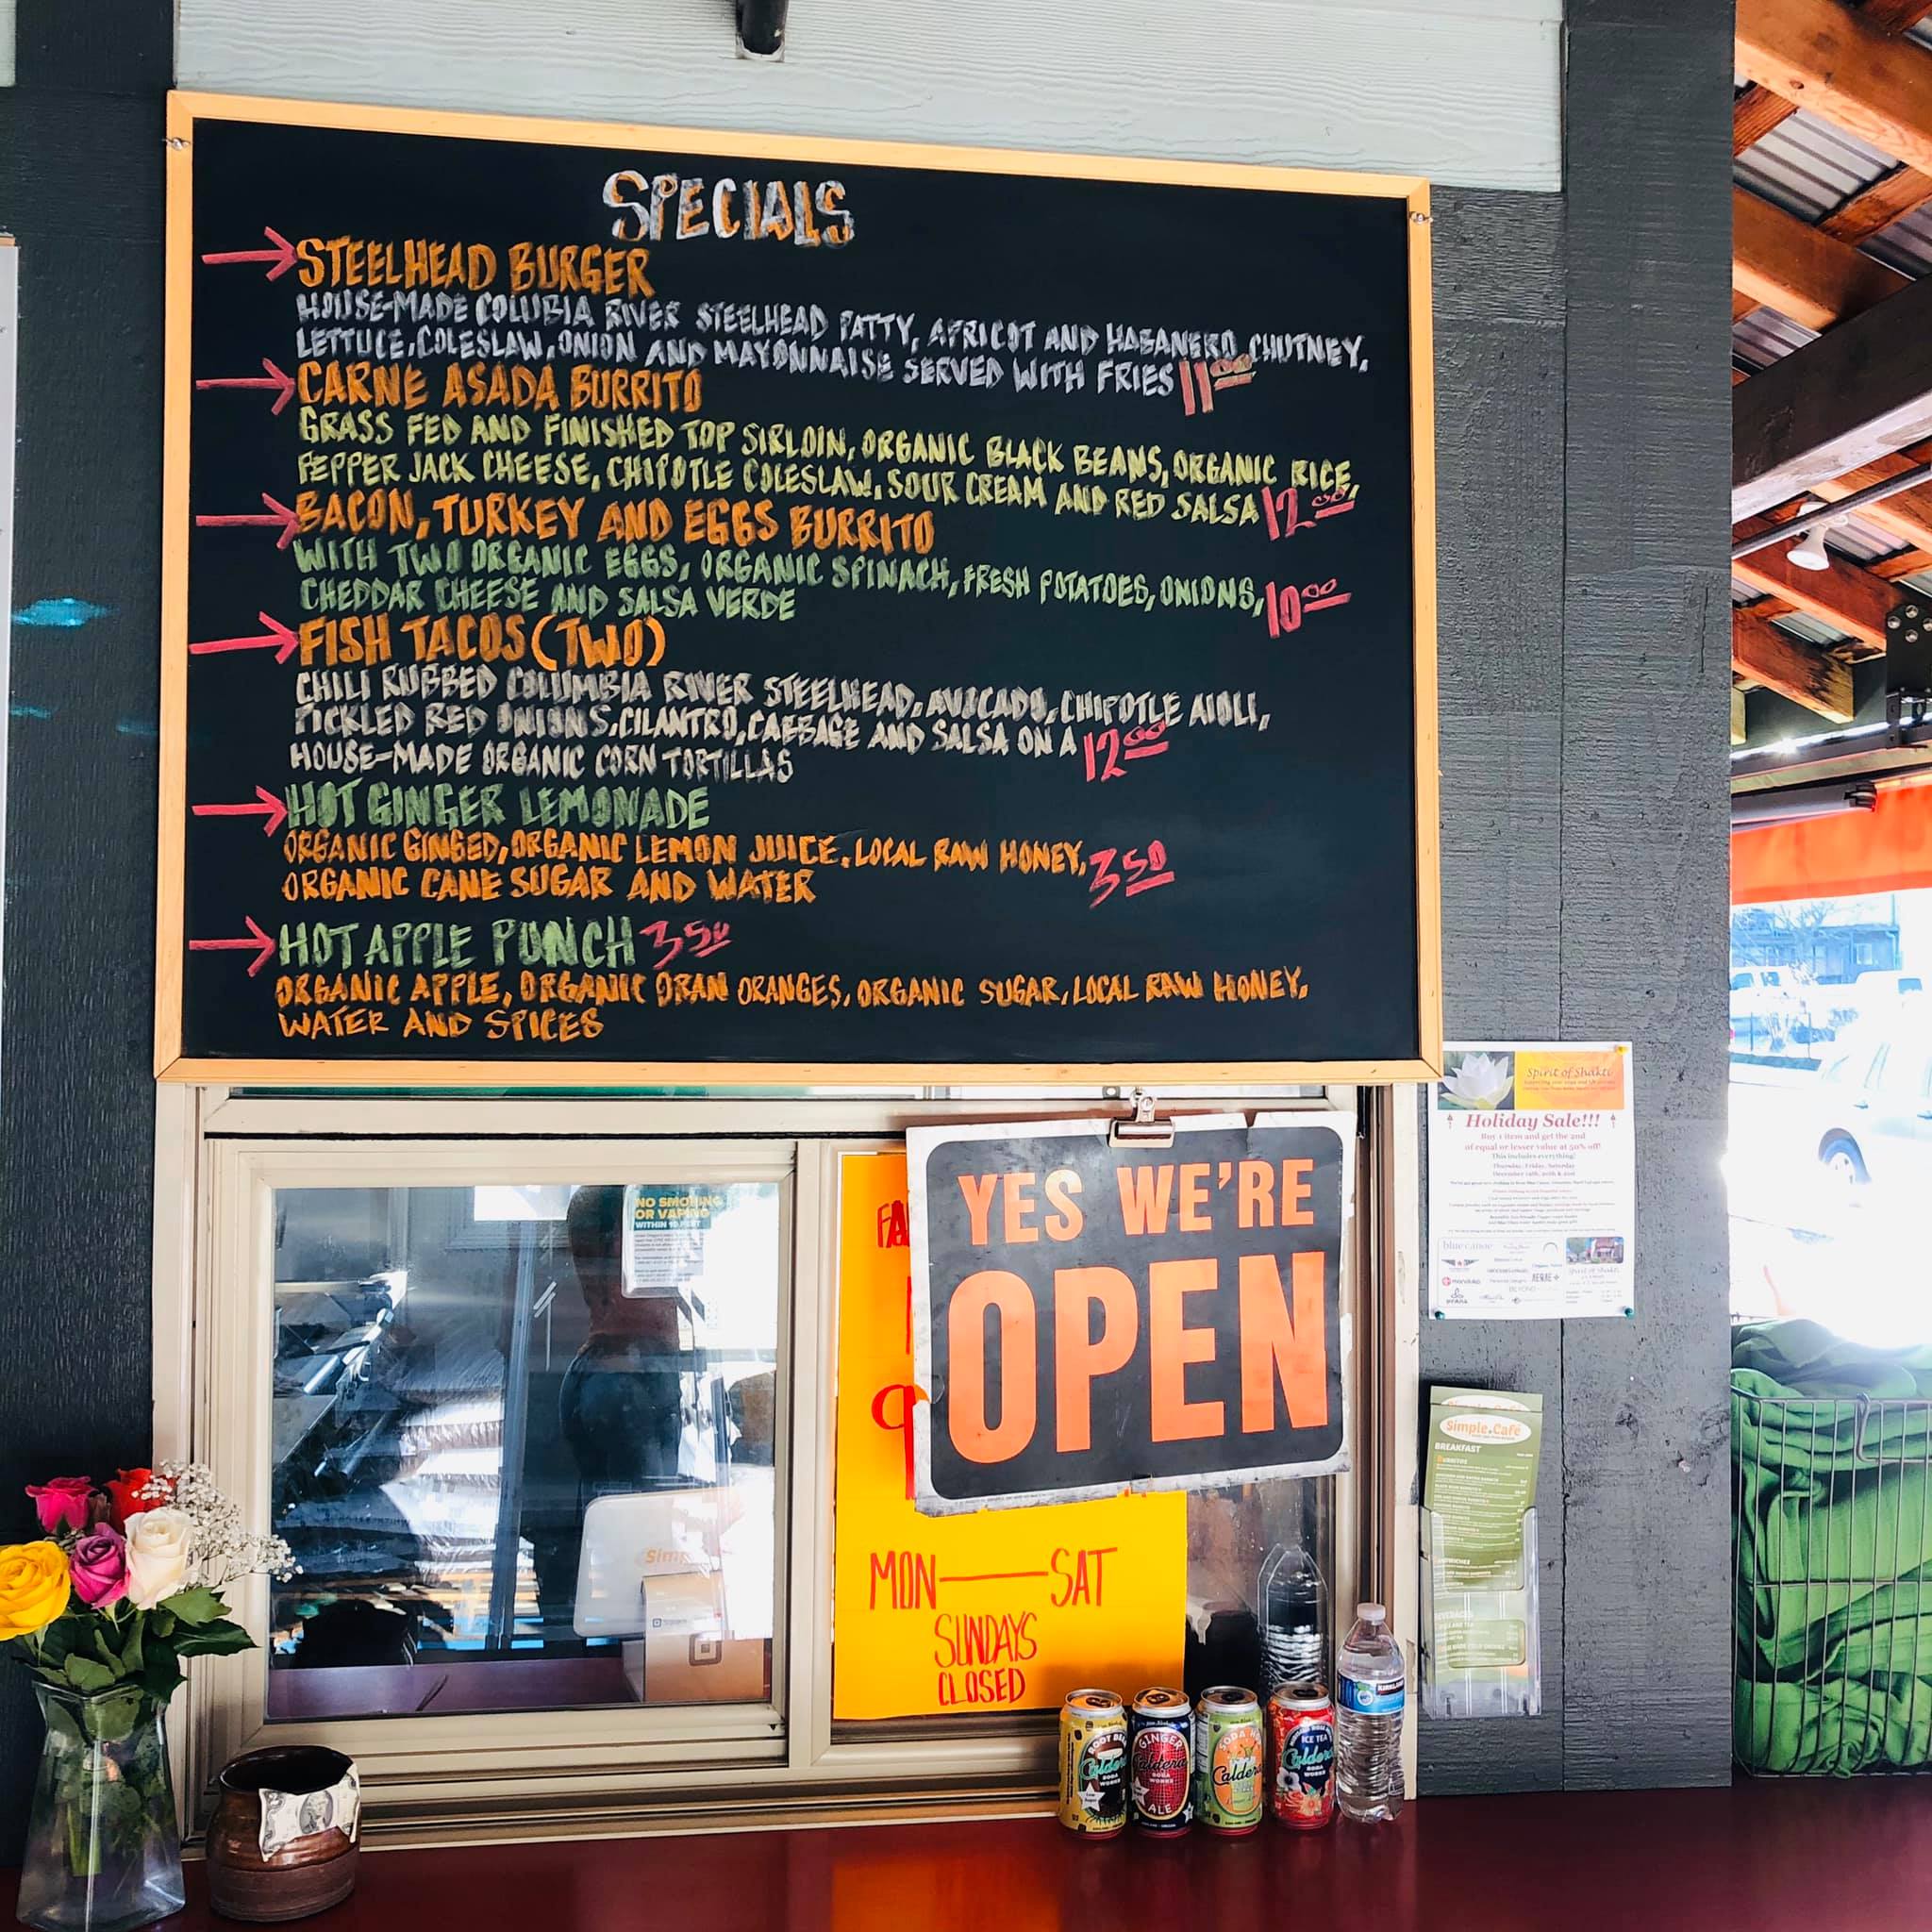 SPECIALS
STEELHEAD BURGER
HOUSE-MADE COLUBIA RIVER STEELHEAD PATTY, APRICOT AND HABANERO CHUTNEY,
LETTUCE, COLESLAW, ONION AND MAYONNAISE SERVED WITH FRIES 11.00
CARNE ASADA BURRITO
GRASS FED AND FINISHED TOP SIRLOIN, ORGANIC BLACK BEANS, ORGANIC RICE,
PEPPER JACK CHEESE, CHIPOTLE COLESLAW, SOUR CREAM AND RED SALSA 12.00
BACON, TURKEY AND EGGS BURRITO
WITH TWO ORGANIC EGGS, ORGANIC SPINACH, FRESH POTATOES, ONIONS, 10.00
CHEDDAR CHEESE AND SALSA VERDE
FISH TACOS (TWO)
CHILI RUBBED COLUMBIA RIVER STEELHEAD, AVICADO, CHIPOTLE AIOLI,
PICKLED RED ONIONS, CILANTRO, CABBAGE AND SALSA ON A 12.00
HOUSE-MADE ORGANIC CORN TORTILLAS
HOT GINGER LEMONADE
ORGANIC GINGED, ORGANIC LEMON JUICE, LOCAL RAW HONEY, 3.50
ORGANIC CANE SUGAR AND WATER
HOT APPLE PUNCH 3.50
ORGANIC APPLE, ORGANIC ORAN ORANGES, ORGANIC SUGAR, LOCAL RAW HONEY,
WATER AND SPICES
YES WE'RE
OPEN
NO SMOKING
OR VAPING
WITHIN 10 FEET
MON — SAT
SUNDAYS
CLOSED
Spirit of Shakti
Holiday Sale!!!
Buy 1 item and get the 2nd
of equal or lesser value at 50% off!
This includes everything!
Thursday, Friday, Saturday
blue canoe
Simple.Café
BREAKFAST
BURRITOS
ROOT BEER
Caldera
SODA WORKS
GINGER
Caldera
SODA WORKS
ALE
Caldera
ICE TEA
Caldera
SODA WORKS
KIRKLAND